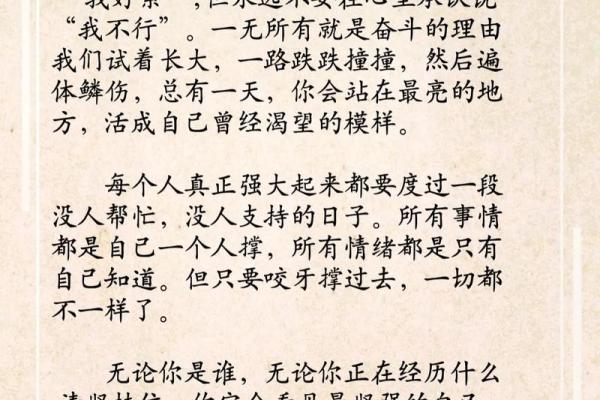 “我好累”,但永远不要在心里承认说
“我不行”。一无所有就是奋斗的理由
我们试着长大，一路跌跌撞撞，然后遍
体鳞伤，总有一天，你会站在最亮的地
方，活成自己曾经渴望的模样。
每个人真正强大起来都要度过一段
没人帮忙，没人支持的日子。所有事情
都是自己一个人撑，所有情绪都是只有
自己知道。但只要咬牙撑过去，一切都
不一样了。
无论你是谁，无论你正在经历什么
请坚持住，你定会看见最坚强的自己